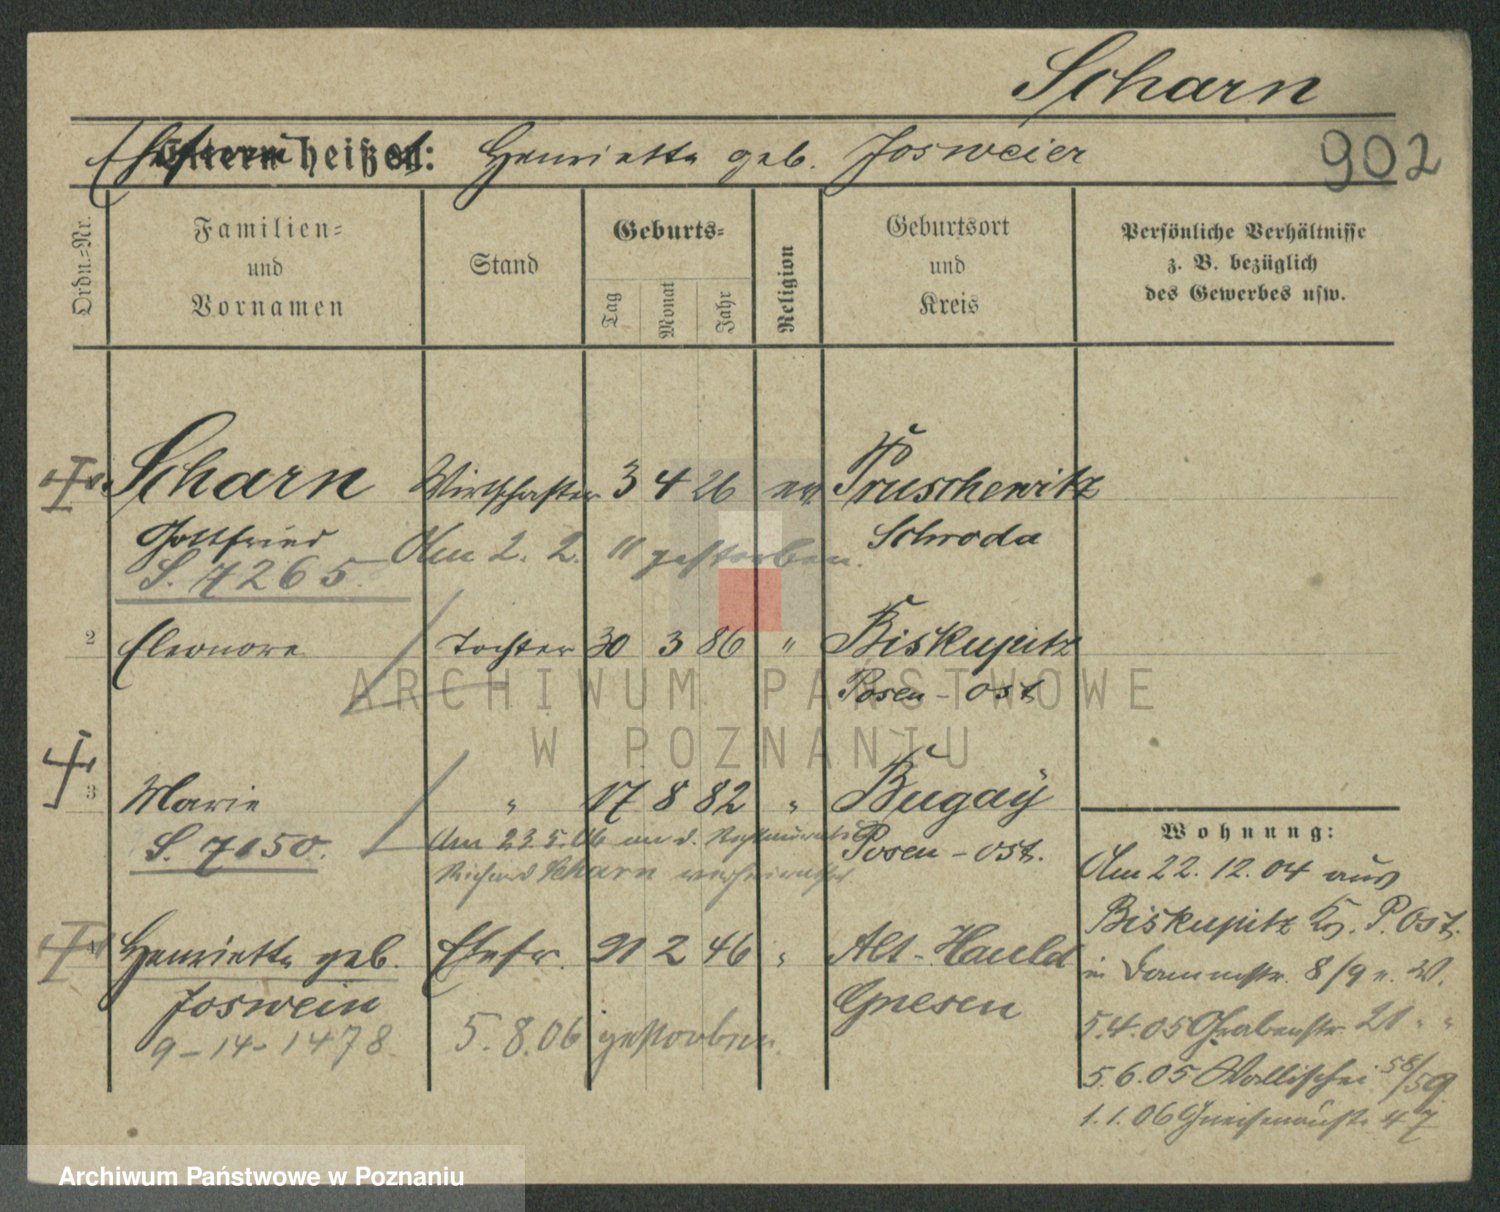 Scharn
Ehefrau heißt: Henriette geb. Josweier
902
Ordn.-Nr.
Familien-
und
Vornamen
Stand
Geburts-
Tag
Monat
Jahr
Religion
Geburtsort
und
Kreis
Persönliche Verhältnisse
z. B. bezüglich
des Gewerbes usw.
Scharn Wirtschafter 3 4 26 ev Pruschewitz
Gottfried Am 2. 2. 11 gestorben. Schroda
S. 7265
2 Eleonore Tochter 30 3 86 " Biskupitz
Posen-Ost
3 Marie " 17 8 82 " Bugaÿ
S. 7150. Am 23.5.06 an d. Posen-Ost.
Richard Scharn verheiratet
Wohnung:
Am 22.12.04 aus
Biskupitz Kr. P. Ost.
4 Henriette geb. Ehefr. 21 2 46 " Alt-Hauld
in Dammstr. 8/9 v. W.
Joswein Gnesen
9-14-1478 5.8.06 gestorben.
5.4.05 Grabenstr 21 " "
5.6.05 Wallischei 58/59
1.1.06 Gneisenaustr 47
ARCHIWUM PAŃSTWOWE
W POZNANIU
Archiwum Państwowe w Poznaniu